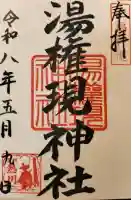 奉拝
湯権現神社
令和八年五月九日